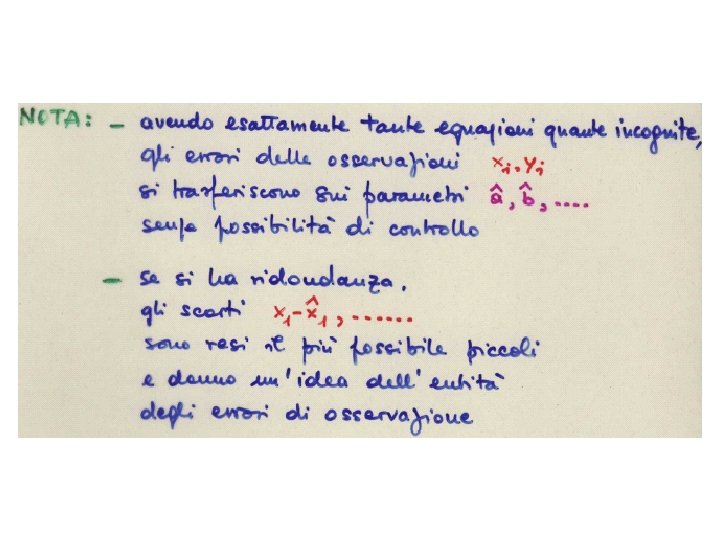 NOTA: - avendo esattamente tante equazioni quante incognite,
gli errori delle osservazioni xi, yi
si trasferiscono sui parametri â, b̂, ....
senza possibilità di controllo
- se si ha ridondanza,
gli scarti x₁-x̂₁, ......
sono resi il più possibile piccoli
e danno un'idea dell'entità
degli errori di osservazione